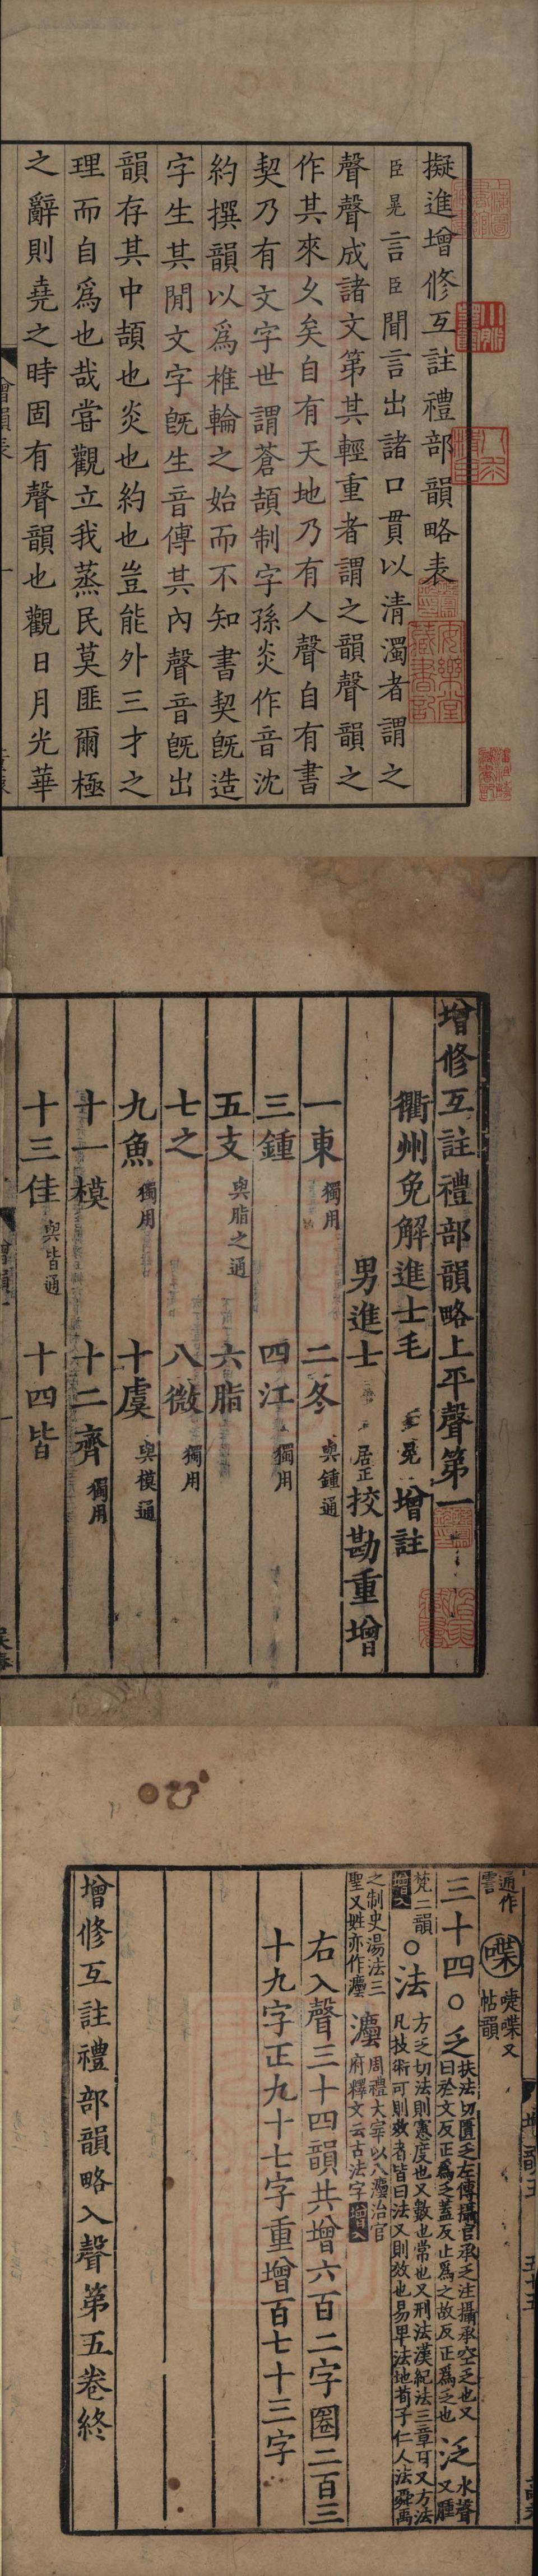 擬進增修互註禮部韻略表
臣晃言臣聞言出諸口貫以清濁者謂之
聲聲成諸文第其輕重者謂之韻聲韻之
作其來久矣自有天地乃有人聲自有書
契乃有文字世謂蒼頡制字孫炎作音沈
約撰韻以為椎輪之始而不知書契既造
字生其閒文字既生音傳其內聲音既出
韻存其中頡也炎也約也豈能外三才之
理而自為也哉嘗觀立我蒸民莫匪爾極
之辭則堯之時固有聲韻也觀日月光華
增修互註禮部韻略上平聲第一
衢州免解進士毛晃增註
男進士居正挍勘重增
一東獨用 二冬與鍾通
三鍾 四江獨用
五支與脂之通 六脂
七之 八微獨用
九魚獨用 十虞與模通
十一模 十二齊獨用
十三佳與皆通 十四皆
通作
喋 啑喋又
帖韻
三十四○乏扶法切匱乏左傳攝官承乏注攝承空乏也又
曰於文反正為乏蓋反止為之故反正為乏也 泛水聲
又腫
梵二韻增入○法方乏切法則憲度也又數也常也又刑法漢紀法三章耳又方法
凡技術可則效者皆曰法又則效也易卑法地荀子仁人法舜禹
之制史湯法三
聖又姓亦作灋 灋周禮大宰以八灋治官
府釋文云古法字增入
右入聲三十四韻共增六百二字圈二百三
十九字正九十七字重增百七十三字
增修互註禮部韻略入聲第五卷終